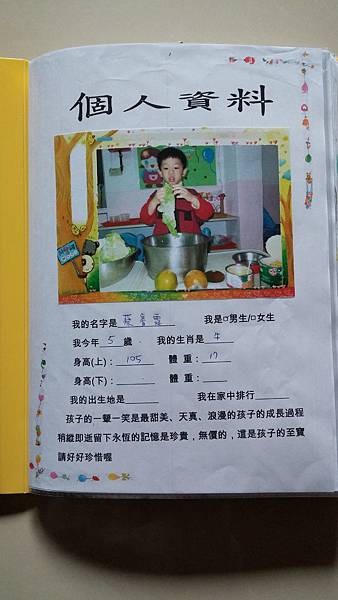 個人資料
我的名字是 我是☑男生/□女生
我今年 5 歲 我的生肖是 牛
身高(上): 105 體 重: 17
身高(下): 體 重:
我的出生地是 我在家中排行
孩子的一顰一笑是最甜美、天真、浪漫的孩子的成長過程
稍縱即逝留下永恆的記憶是珍貴，無價的，這是孩子的至寶
請好好珍惜喔